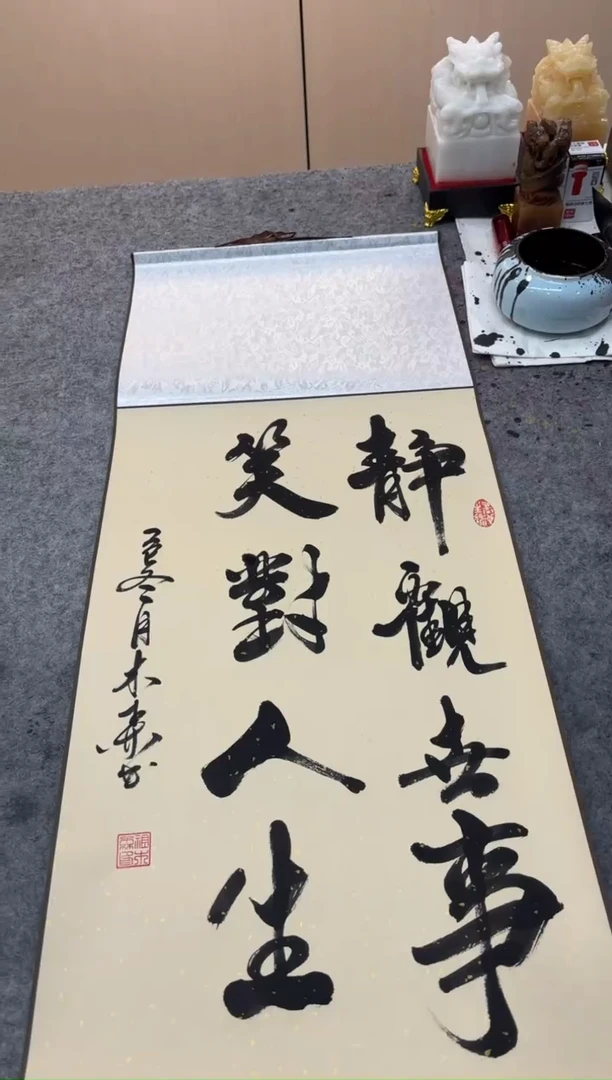 靜觀世事
笑對人生
冬月木森书